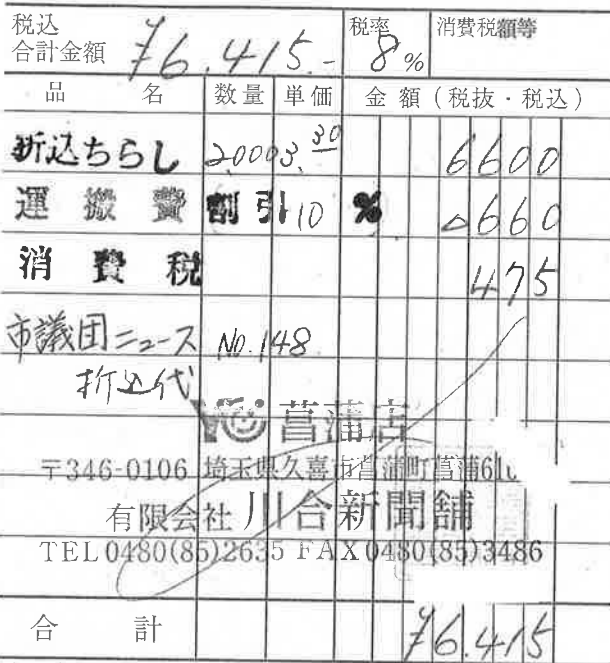 税込
合計金額 ¥6,415.- 税率 8% 消費税額等
品 名 数量 単価 金額(税抜・税込)
折込ちらし 2,000 3.30 6600
運搬費 割引 10 % △660
消費税 475
市議団ニュース No.148
折込代
菖蒲店
〒346-0106 埼玉県久喜市菖蒲町菖蒲
有限会社 川合新聞舗
TEL 0480(85)2635 FAX 0480(85)3486
合計 ¥6,415